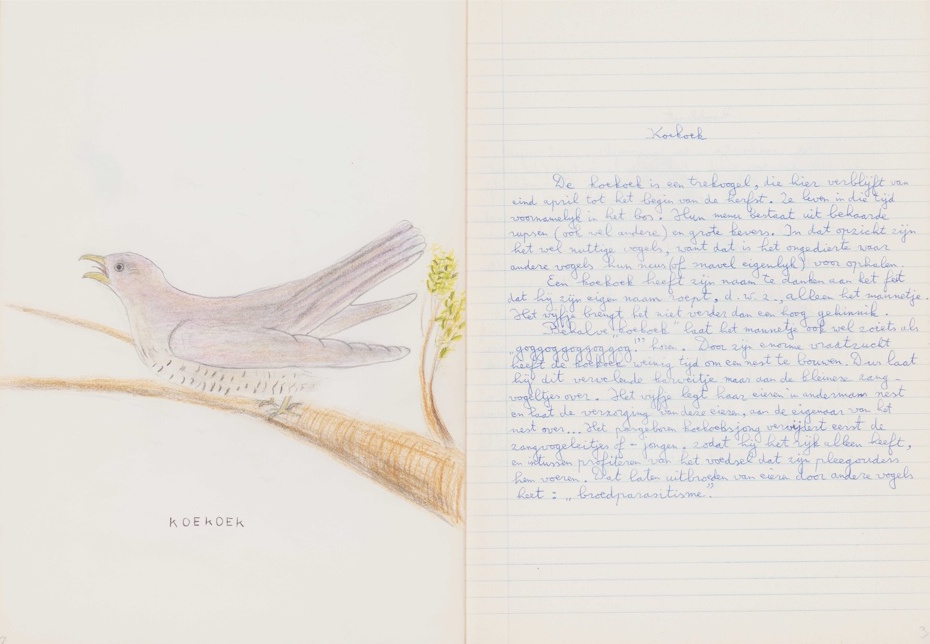 KOEKOEK
Koekoek
De koekoek is een trekvogel, die hier verblijft van
eind april tot het begin van de herfst. Ze leven in die tijd
voornamelijk in het bos. Hun menu bestaat uit behaarde
rupsen (ook wel andere) en grote kevers. In dat opzicht zijn
het wel nuttige vogels, want dat is het ongedierte waar
andere vogels hun neus (of snavel eigenlijk) voor ophalen.
Een koekoek heeft zijn naam te danken aan het feit
dat hij zijn eigen naam roept, d.w.z., alleen het mannetje.
Het wijfje brengt het niet verder dan een hoog gehinnik.
Behalve „koekoek" laat het mannetje ook wel zoiets als
„goggoggoggoggog!" horen. Door zijn enorme vraatzucht
heeft de koekoek weinig tijd om een nest te bouwen. Dus laat
hij dit vervelende karweitje maar aan de kleinere zang-
vogeltjes over. Het wijfje legt haar eieren in andermans nest
en laat de verzorging van deze eieren, aan de eigenaar van het
nest over... Het pasgeboren koekoeksjong verwijdert eerst de
zangvogeleitjes of - jongen. zodat hij het rijk alleen heeft,
en intussen profiteren van het voedsel dat zijn pleegouders
hem voeren. Dat laten uitbroeden van eieren door andere vogels
heet : „broedparasitisme".
3